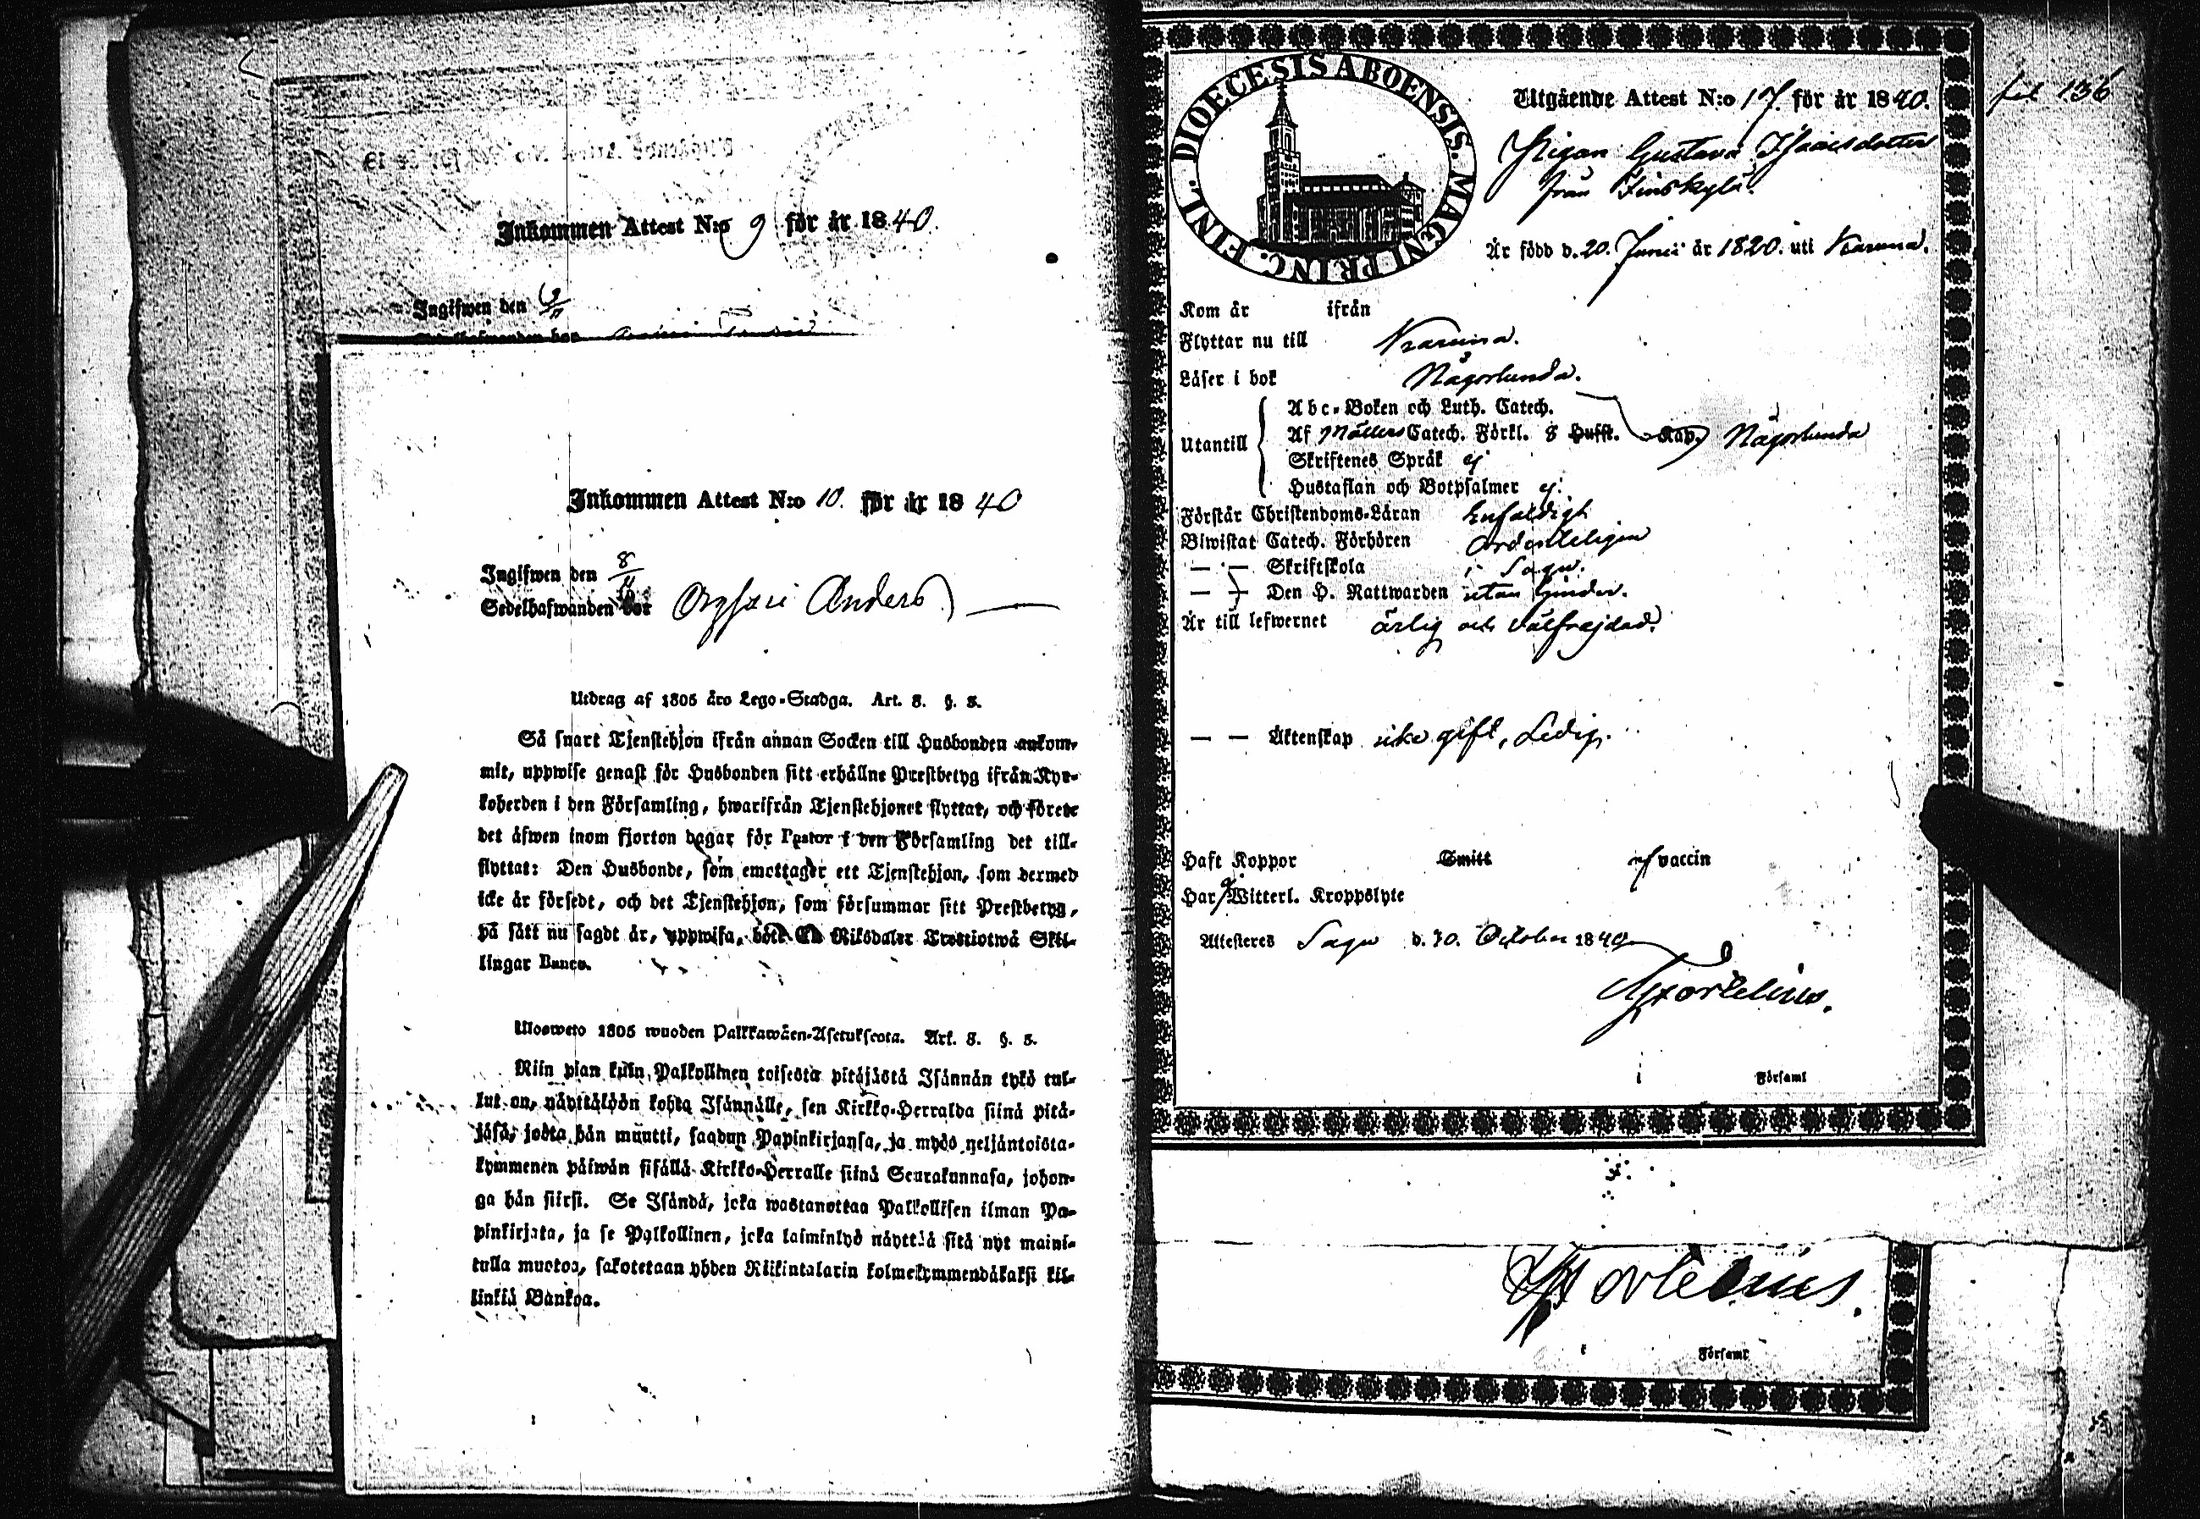 Inkommen Attest N:o 9 för år 1840.
Ingifwen den
Inkommen Attest N:o 10. för år 1840
Ingifwen den 8/11
Sedelhafwanden bor Anders
Utdrag af 1805 års Lego-Stadga. Art. 8. §. 3.
Så snart Tjenstehjon ifrån annan Socken till Husbonden ankom-
mit, uppwise genast för Husbonden sitt erhållne Prestbetyg ifrån Kyr-
koherden i den Församling, hwarifrån Tjenstehjonet flyttat, och förete
det äfwen inom fjorton dagar för Pastor i den Församling det till-
flyttat: Den Husbonde, som emottager ett Tjenstehjon, som dermed
icke är försedt, och det Tjenstehjon, som försummar sitt Prestbetyg,
på sätt nu sagdt är, uppwisa, böte En Riksdaler Trettiotwå Skil-
lingar Banco.
Ulosweto 1805 wuoden Palkkawäen-Asetuksesta. Art. 8. §. 3.
Niin pian kuin Palkollinen toisesta pitäjästä Isännän tykö tul-
lut on, näyttäköön kohta Isännälle, sen Kirkko-Herralda siinä pitä-
jäsä, josta hän muutti, saadun Papinkirjansa, ja myös neljäntoista-
kymmenen päiwän sisällä Kirkko-Herralle siinä Seurakunnasa, johon-
ga hän siirsi. Se Isändä, joka wastanottaa Palkollisen ilman Pa-
pinkirjata, ja se Palkollinen, joka laiminlyö näyttää sitä nyt maini-
tulla muotoa, sakotetaan yhden Riikintalarin kolmekymmendäkaksi kil-
linkiä Bankoa.
fol 136
DIOECESIS ABOENSIS. MAGNI PRINC. FINL.
Utgående Attest N:o 17. för år 1840.
Pigan Gustava Isaacsdotter
från Finskylä.
Är född d. 20. Junii år 1820. uti Karuna.
Kom år ifrån
Flyttar nu till Karuna.
Läser i bok Någorlunda.
Utantill
Abc-Boken och Luth. Catech.
Af Möllers Catech. Förkl. 8 Hufst. Kap. Någorlunda
Skriftenes Språk ej
Hustaflan och Botpsalmer ej.
Förstår Christendoms-Läran Enfaldigt
Biwistat Catech. Förhören ordenteligen
— — Skriftskola i Sagu.
— — Den H. Nattwarden utan hinder.
Är till lefwernet ärlig och välfrejdad.
— — Äktenskap icke gift, Ledig.
Haft Koppor Smitt af vaccin
Har ej Witterl. Kroppslyte
Attesteres Sagu d. 30. October 1840
i Församl
i Församl